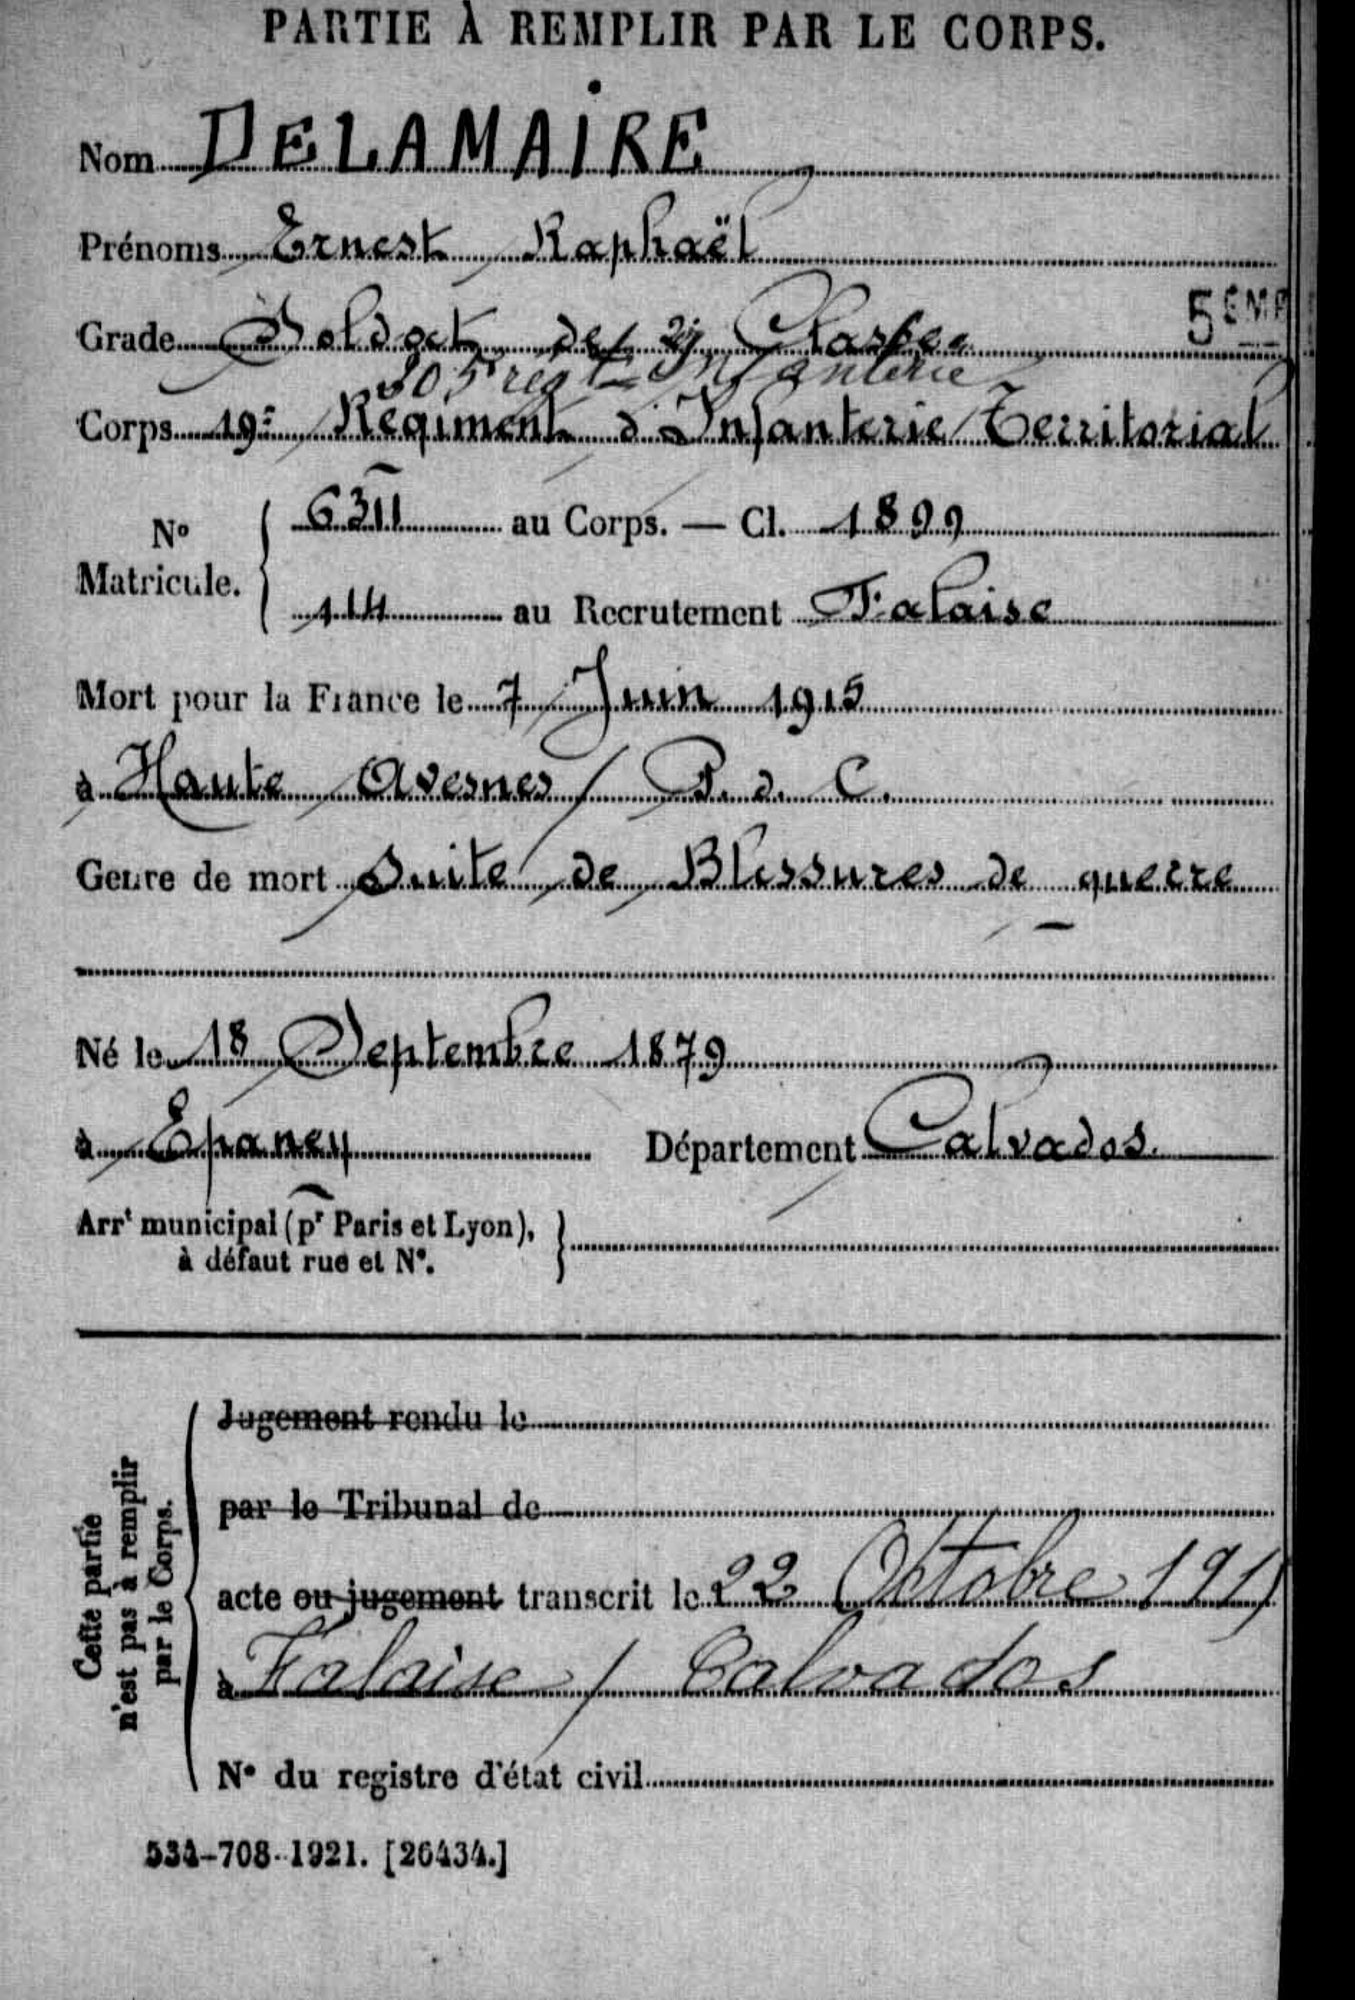 PARTIE À REMPLIR PAR LE CORPS.
Nom DELAMAIRE
Prénoms Ernest Raphaël
Grade Soldat de 2e Classe 5EME
305e regt Infanterie
Corps 19e Régiment d'Infanterie Territorial
No Matricule. 6311 au Corps. — Cl. 1899
114 au Recrutement Falaise
Mort pour la France le 7 Juin 1915
à Haute Avesnes / P. d. C.
Genre de mort Suite de Blessures de guerre
Né le 18 Septembre 1879
à Epaney Département Calvados.
Arrt municipal (pr Paris et Lyon),
à défaut rue et No.
Cette partie
n'est pas à remplir
par le Corps.
Jugement rendu le
par le Tribunal de
acte ou jugement transcrit le 22 Octobre
à Falaise / Calvados
No du registre d'état civil
534-708-1921. [26434.]